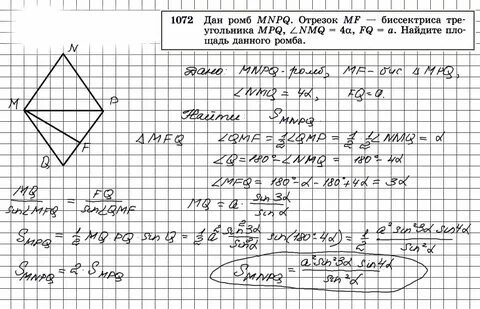 1072 Дан ромб MNPQ. Отрезок MF — биссектриса тре-
угольника MPQ, ∠NMQ = 4α, FQ = a. Найдите пло-
щадь данного ромба.
N
M
P
Q
F
Дано: MNPQ - ромб, MF - бис △MPQ,
∠NMQ = 4α, FQ = a.
Найти S_MNPQ
△MFQ ∠QMF = 1/2 ∠QMP = 1/2 · 1/2 ∠NMQ = α
∠Q = 180° - ∠NMQ = 180° - 4α
∠MFQ = 180° - α - 180° + 4α = 3α
MQ / sin∠MFQ = FQ / sin∠QMF MQ = a · sin3α / sinα
S_MPQ = 1/2 MQ PQ sin Q = 1/2 a² sin²3α / sin²α sin(180° - 4α) = 1/2 a² sin²3α sin4α / sin²α
S_MNPQ = 2 · S_MPQ S_MNPQ = a² sin²3α sin4α / sin²α